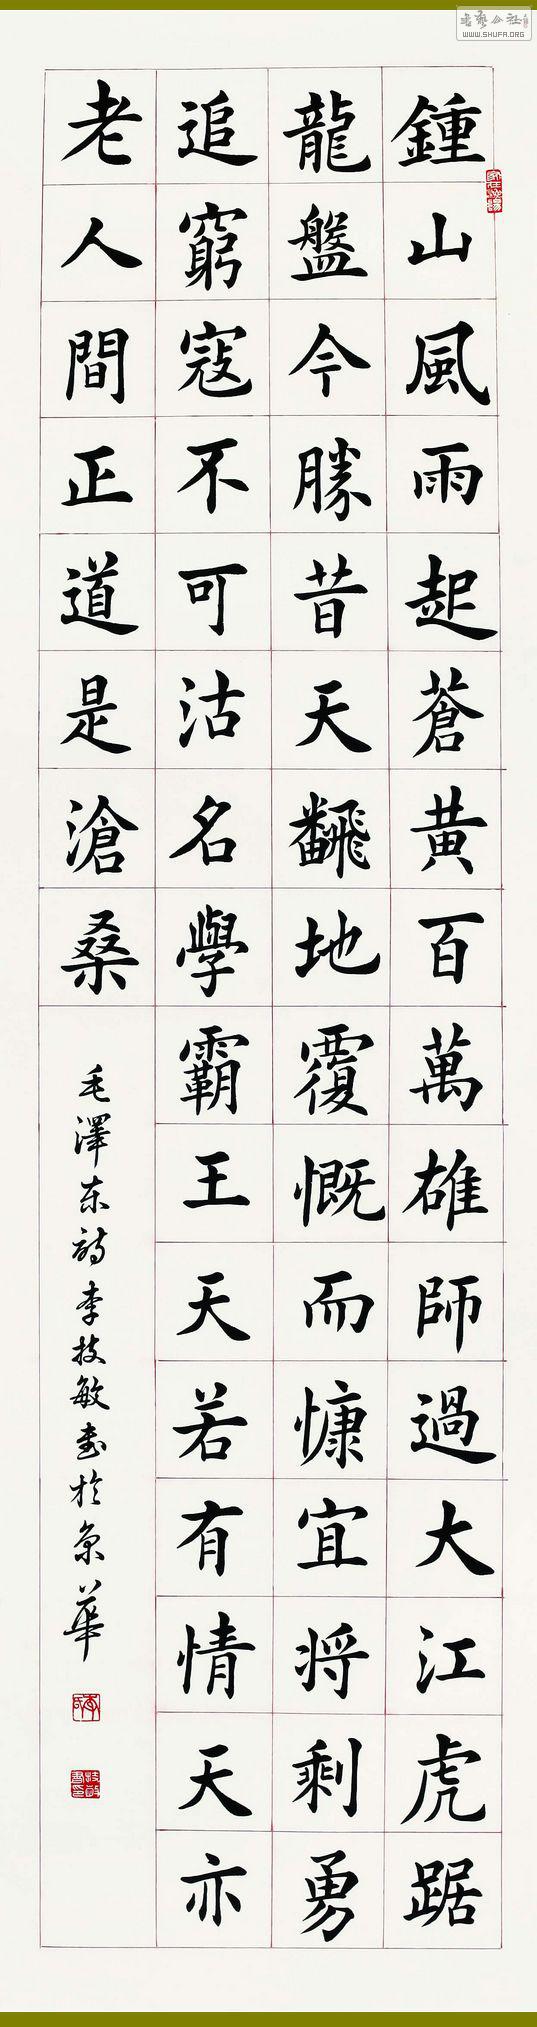 鍾山風雨起蒼黄百萬雄師過大江虎踞
龍盤今勝昔天飜地覆慨而慷宜将剩勇
追窮寇不可沽名學霸王天若有情天亦
老人間正道是滄桑
毛澤东詩李技敏書於京華
書藝公社
WWW.SHUFA.ORG